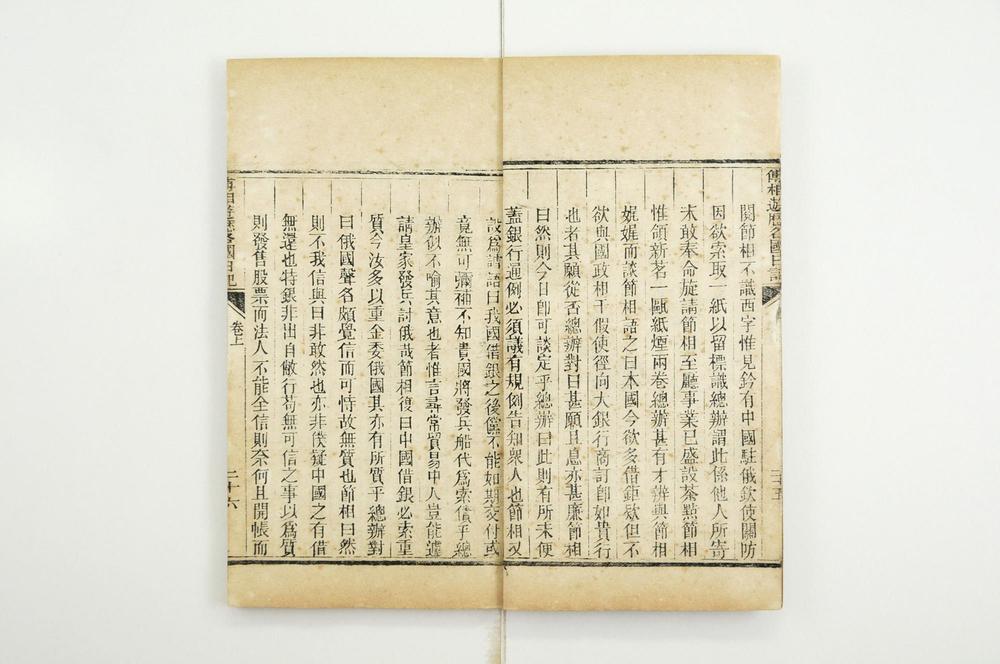 傅相遊歷各國日記
二十五
關節相不識西字惟見鈐有中國駐俄欽使關防
因欲索取一紙以留標識總辦謂此係他人所寄
未敢奉命旋請節相至廳事業已盛設茶點節相
惟領新茗一甌紙煙兩卷總辦甚有才辨與節相
娓娓而談節相語之曰本國今欲多借鉅欵但不
欲與國政相干假使徑向大銀行商訂卽如貴行
也者其願從否總辦對曰甚願且息亦甚廉節相
曰然則今日卽可談定乎總辦曰此則有所未便
蓋銀行通例必須議有規例告知衆人也節相又
設爲譎語曰我國借銀之後儻不能如期交付或
竟無可彌補不知貴國將發兵船代爲索債乎總
辦似不喻其意也者惟言尋常貿易中人豈能遽
請皇家發兵討俄哉節相復曰中國借銀必索重
質今汝多以重金委俄國其亦有所質乎總辦對
曰俄國聲名頗覺信而可恃故無質也節相曰然
則不我信與曰非敢然也亦非僕疑中國之有借
無還也特銀非出自敝行苟無可信之事以爲質
則發售股票而法人不能全信則奈何且開帳而
傅相遊歷各國日記
卷上
二十六